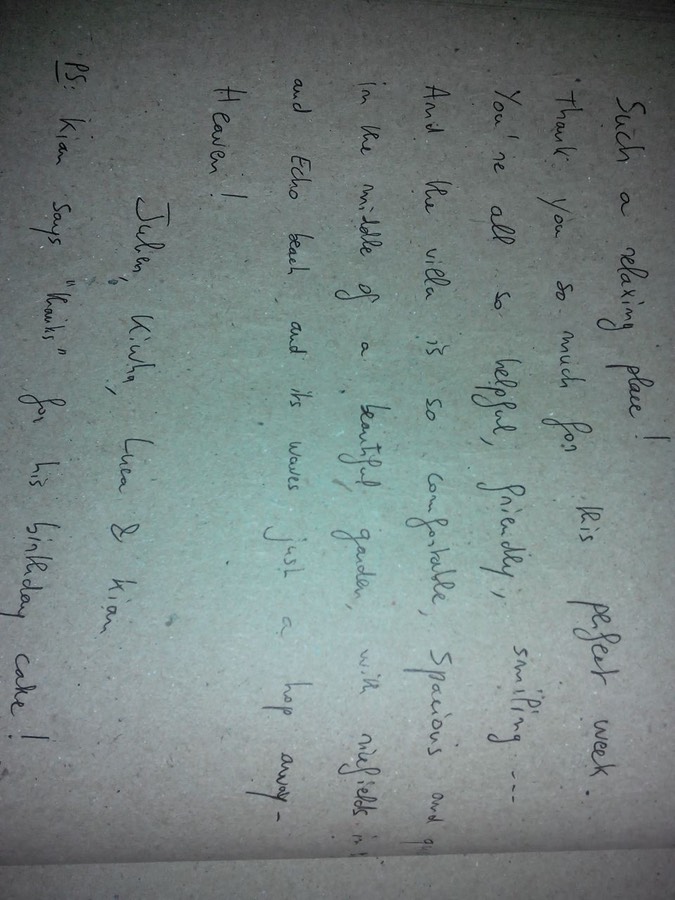 Such a relaxing place!
Thank you so much for this perfect week.
You're all so helpful, friendly, smiling ---
And the villa is so comfortable, spacious and
in the middle of a beautiful garden, with ricefields
and Echo beach and its waves just a hop away-
Heaven!
Julien, Luca & Kian
PS: Kian says "thanks" for his birthday cake!